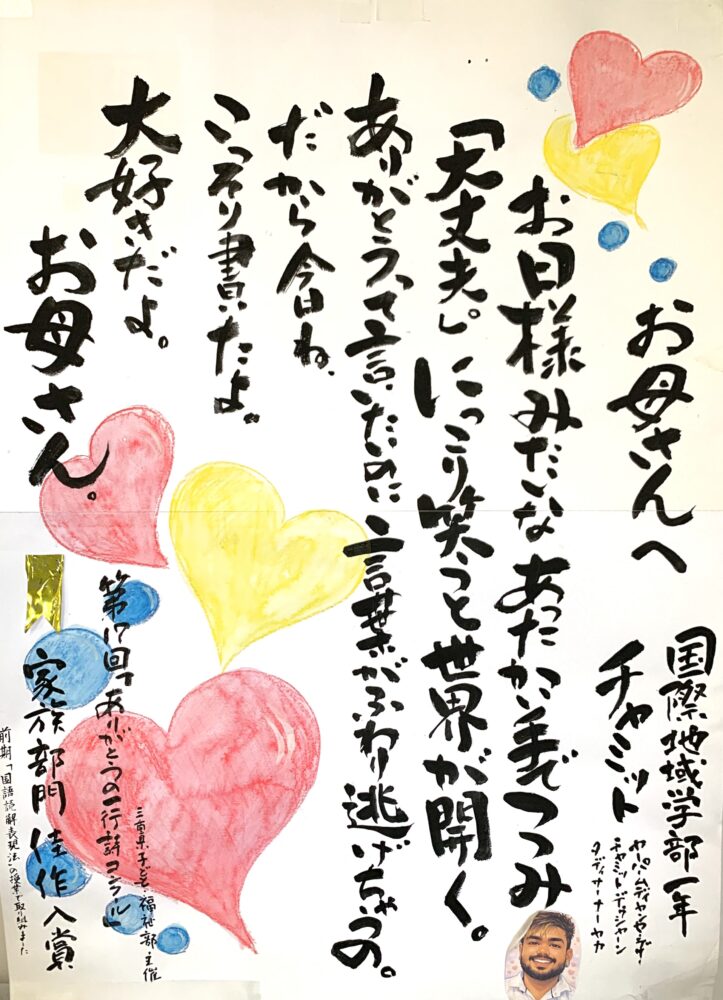 お母さんへ
国際地域学部一年
チャミット
お日様みたいなあったかい手でつつみ
「大丈夫。」にっこり笑うと世界が開く。
ありがとうって言いたいのに言葉がふわり逃げちゃうの。
だから今日ね、
こっそり書いたよ。
大好きだよ。
お母さん。
三重県子ども・福祉部主催
第17回「ありがとうの一行詩コンクール」
家族部門佳作入賞
前期「国語読解表現法」の授業で取り組みました